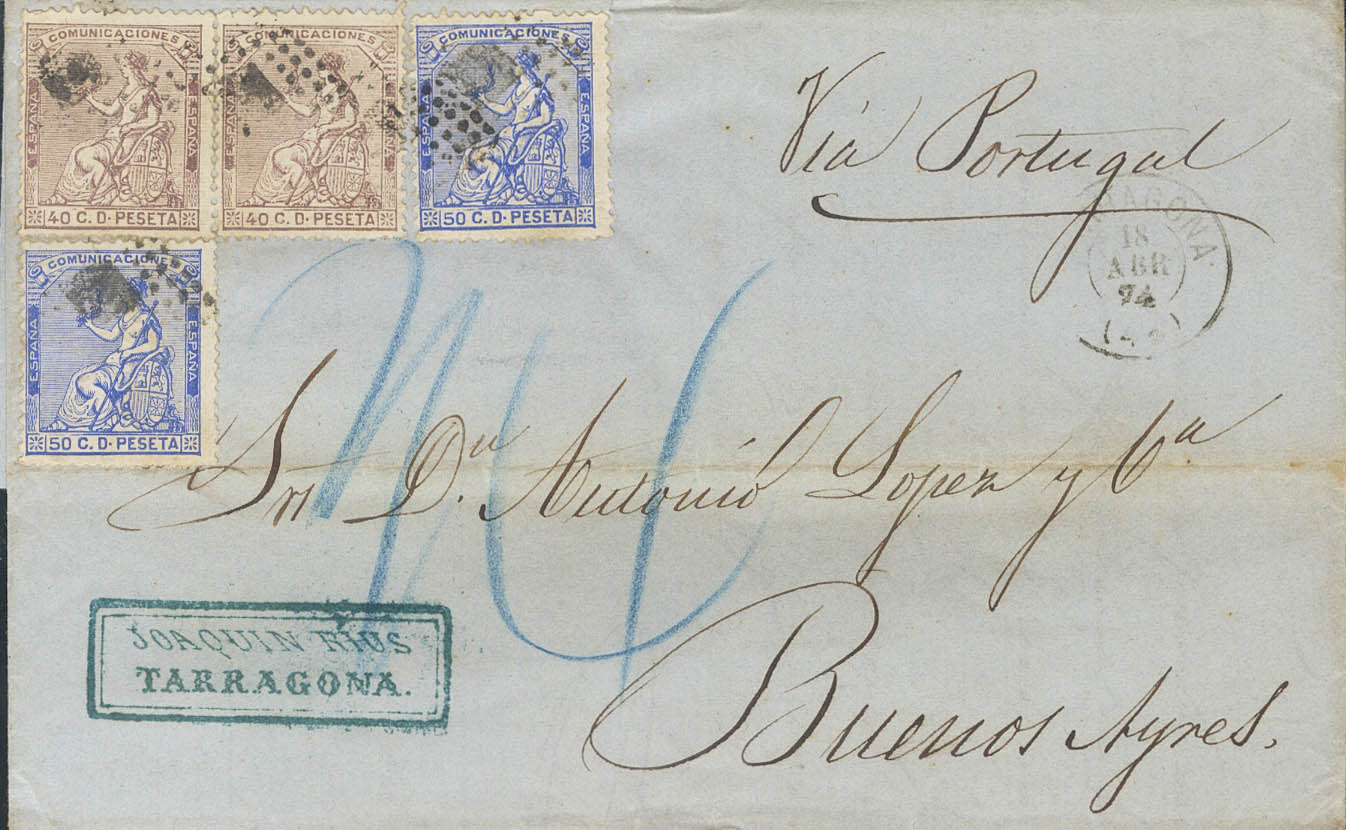 COMUNICACIONES
ESPAÑA
ESPAÑA
40 C. D. PESETA
COMUNICACIONES
ESPAÑA
ESPAÑA
40 C. D. PESETA
COMUNICACIONES
ESPAÑA
ESPAÑA
50 C. D. PESETA
COMUNICACIONES
ESPAÑA
ESPAÑA
50 C. D. PESETA
Via Portugal
18
ABR
74
Sr. Dn. Antonio Lopez y Ca
Buenos Ayres.
JOAQUIN RIUS
TARRAGONA.